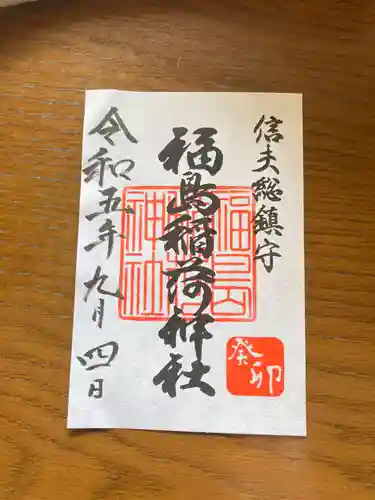 信夫総鎮守
福島稲荷神社
令和五年九月四日
福島
神社
癸卯